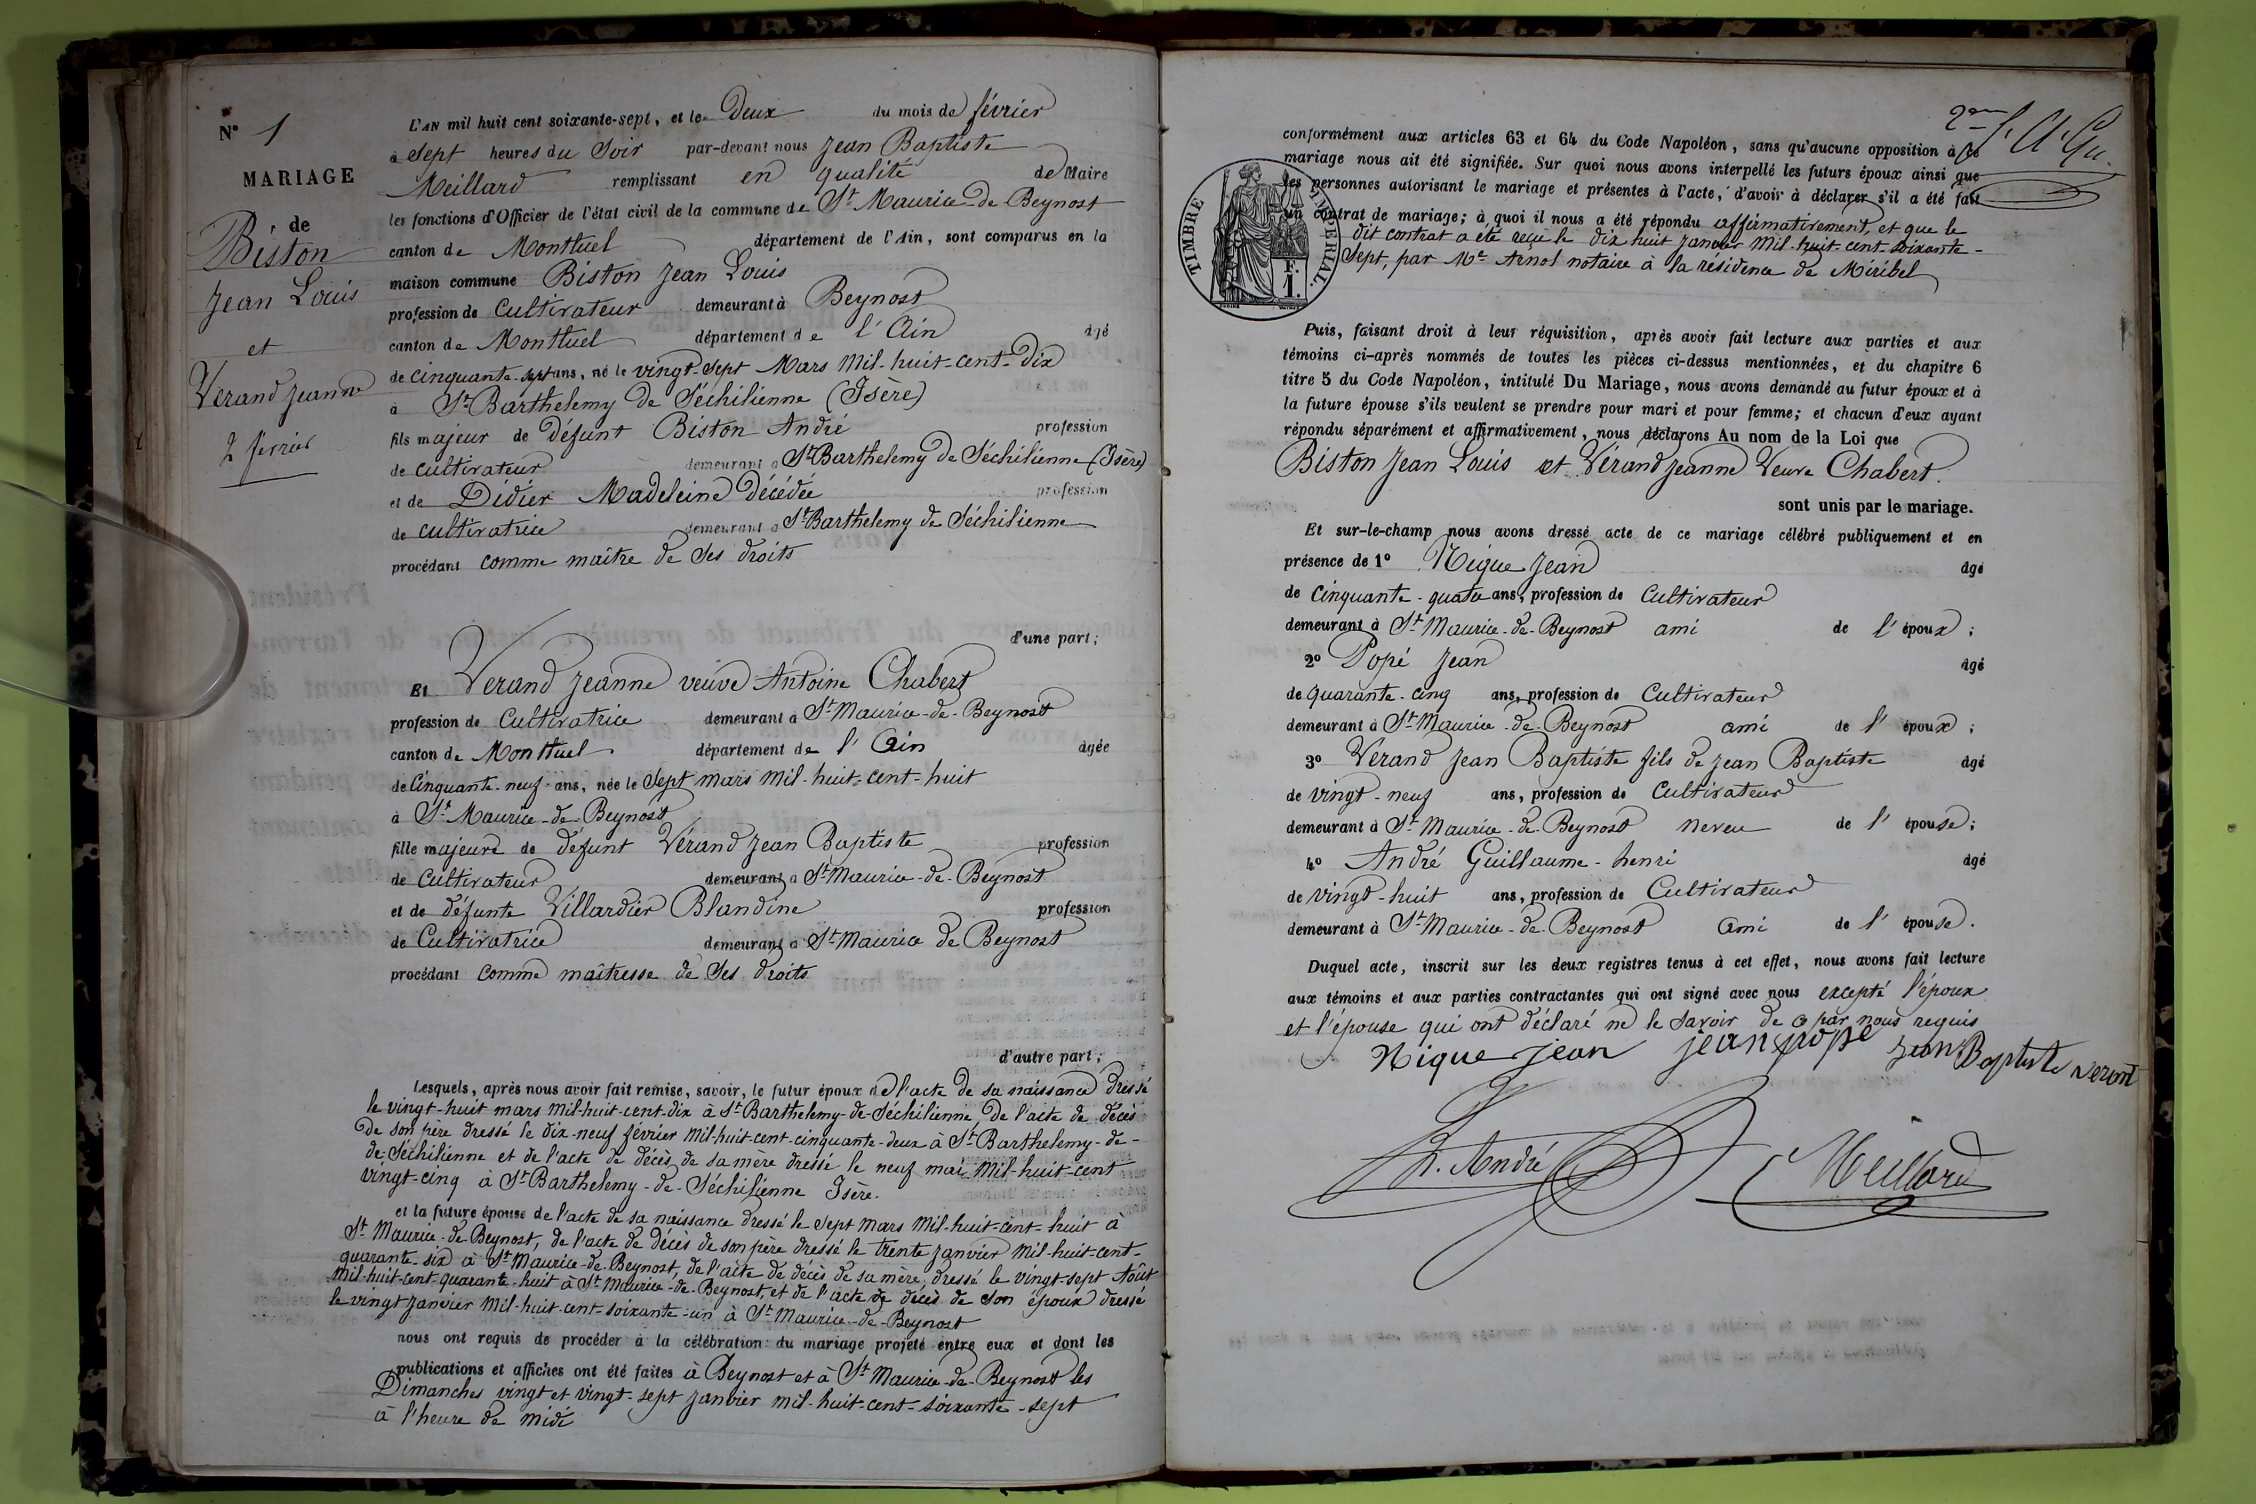 N° 1
MARIAGE
de
Biston
Jean Louis
et
Verand Jeanne
2 février
L'AN mil huit cent soixante-sept, et le Deux du mois de février
à Sept heures du Soir par-devant nous Jean Baptiste
Meillard remplissant en qualité de Maire
les fonctions d'Officier de l'état civil de la commune de St Maurice-de-Beynost
canton de Montluel département de l'Ain, sont comparus en la
maison commune Biston Jean Louis
profession de Cultivateur demeurant à Beynost
canton de Montluel département de l'Ain âgé
de Cinquante-sept ans, né le vingt-sept Mars Mil-huit-cent-dix
à St Barthelemy de Séchilienne (Isère)
fils majeur de défunt Biston André profession
de cultivateur demeurant à St Barthelemy de Séchilienne (Isère)
et de Didier Madeleine décédée profession
de cultivatrice demeurant à St Barthelemy de Séchilienne
procédant comme maître de ses droits
d'une part;
Et Verand Jeanne veuve Antoine Chabert
profession de Cultivatrice demeurant à St Maurice-de-Beynost
canton de Montluel département de l'Ain âgée
de Cinquante-neuf-ans, née le Sept mars mil-huit-cent-huit
à St Maurice-de-Beynost
fille majeure de défunt Vérand Jean Baptiste profession
de Cultivateur demeurant à St Maurice-de-Beynost
et de défunte Villardier Blandine profession
de Cultivatrice demeurant à St Maurice de Beynost
procédant comme maîtresse de ses droits
d'autre part;
Lesquels, après nous avoir fait remise, savoir, le futur époux de l'acte de sa naissance dressé
le vingt-huit mars mil-huit-cent-dix à St Barthelemy-de-Séchilienne, De l'acte de décès
de son père dressé le dix-neuf février mil-huit-cent-cinquante-deux à St Barthelemy-de-
de-Séchilienne et de l'acte de décès de sa mère dressé le neuf mai mil-huit-cent
vingt-cinq à St Barthelemy-de-Séchilienne Isère.
et la future épouse de l'acte de sa naissance dressé le sept mars mil-huit-cent-huit à
St Maurice-de-Beynost, de l'acte de décès de son père dressé le trente janvier mil-huit-cent-
quarante-six à St Maurice-de-Beynost, de l'acte de décès de sa mère, dressé le vingt-sept Août
mil-huit-cent-quarante-huit à St Maurice-de-Beynost, et de l'acte de décès de son époux dressé
le vingt janvier mil-huit-cent-soixante-un à St Maurice-de-Beynost
nous ont requis de procéder à la célébration du mariage projeté entre eux et dont les
publications et affiches ont été faites à Beynost et à St Maurice-de-Beynost les
Dimanches vingt et vingt-sept janvier mil-huit-cent-soixante-sept
à l'heure de midi
2me
conformément aux articles 63 et 64 du Code Napoléon, sans qu'aucune opposition à ce
mariage nous ait été signifiée. Sur quoi nous avons interpellé les futurs époux ainsi que
les personnes autorisant le mariage et présentes à l'acte, d'avoir à déclarer s'il a été fait
un contrat de mariage; à quoi il nous a été répondu affirmativement, et que le
dit contrat a été reçu le dix huit janvier mil-huit-cent-soixante-
Sept, par Me Arnol notaire à la résidence de Miribel
TIMBRE IMPÉRIAL.
F.
1.
Puis, faisant droit à leur réquisition, après avoir fait lecture aux parties et aux
témoins ci-après nommés de toutes les pièces ci-dessus mentionnées, et du chapitre 6
titre 5 du Code Napoléon, intitulé Du Mariage, nous avons demandé au futur époux et à
la future épouse s'ils veulent se prendre pour mari et pour femme; et chacun d'eux ayant
répondu séparément et affirmativement, nous déclarons Au nom de la Loi que
Biston Jean Louis et Vérand Jeanne Veuve Chabert.
sont unis par le mariage.
Et sur-le-champ nous avons dressé acte de ce mariage célébré publiquement et en
présence de 1° Nique Jean âgé
de Cinquante-quatre ans, profession de Cultivateur
demeurant à St Maurice-de-Beynost ami de l'époux;
2° Popé Jean âgé
de quarante-cinq ans, profession de Cultivateur
demeurant à St Maurice-de-Beynost ami de l'époux;
3° Verand Jean Baptiste fils de Jean Baptiste âgé
de vingt-neuf ans, profession de Cultivateur
demeurant à St Maurice-de-Beynost neveu de l'épouse;
4° André Guillaume-henri âgé
de vingt-huit ans, profession de Cultivateur
demeurant à St Maurice-de-Beynost Ami de l'épouse.
Duquel acte, inscrit sur les deux registres tenus à cet effet, nous avons fait lecture
aux témoins et aux parties contractantes qui ont signé avec nous excepté l'époux
et l'épouse qui ont déclaré ne le savoir de ce par nous requis
Nique jean jean pope Jean Baptiste veront
h. André Meillard